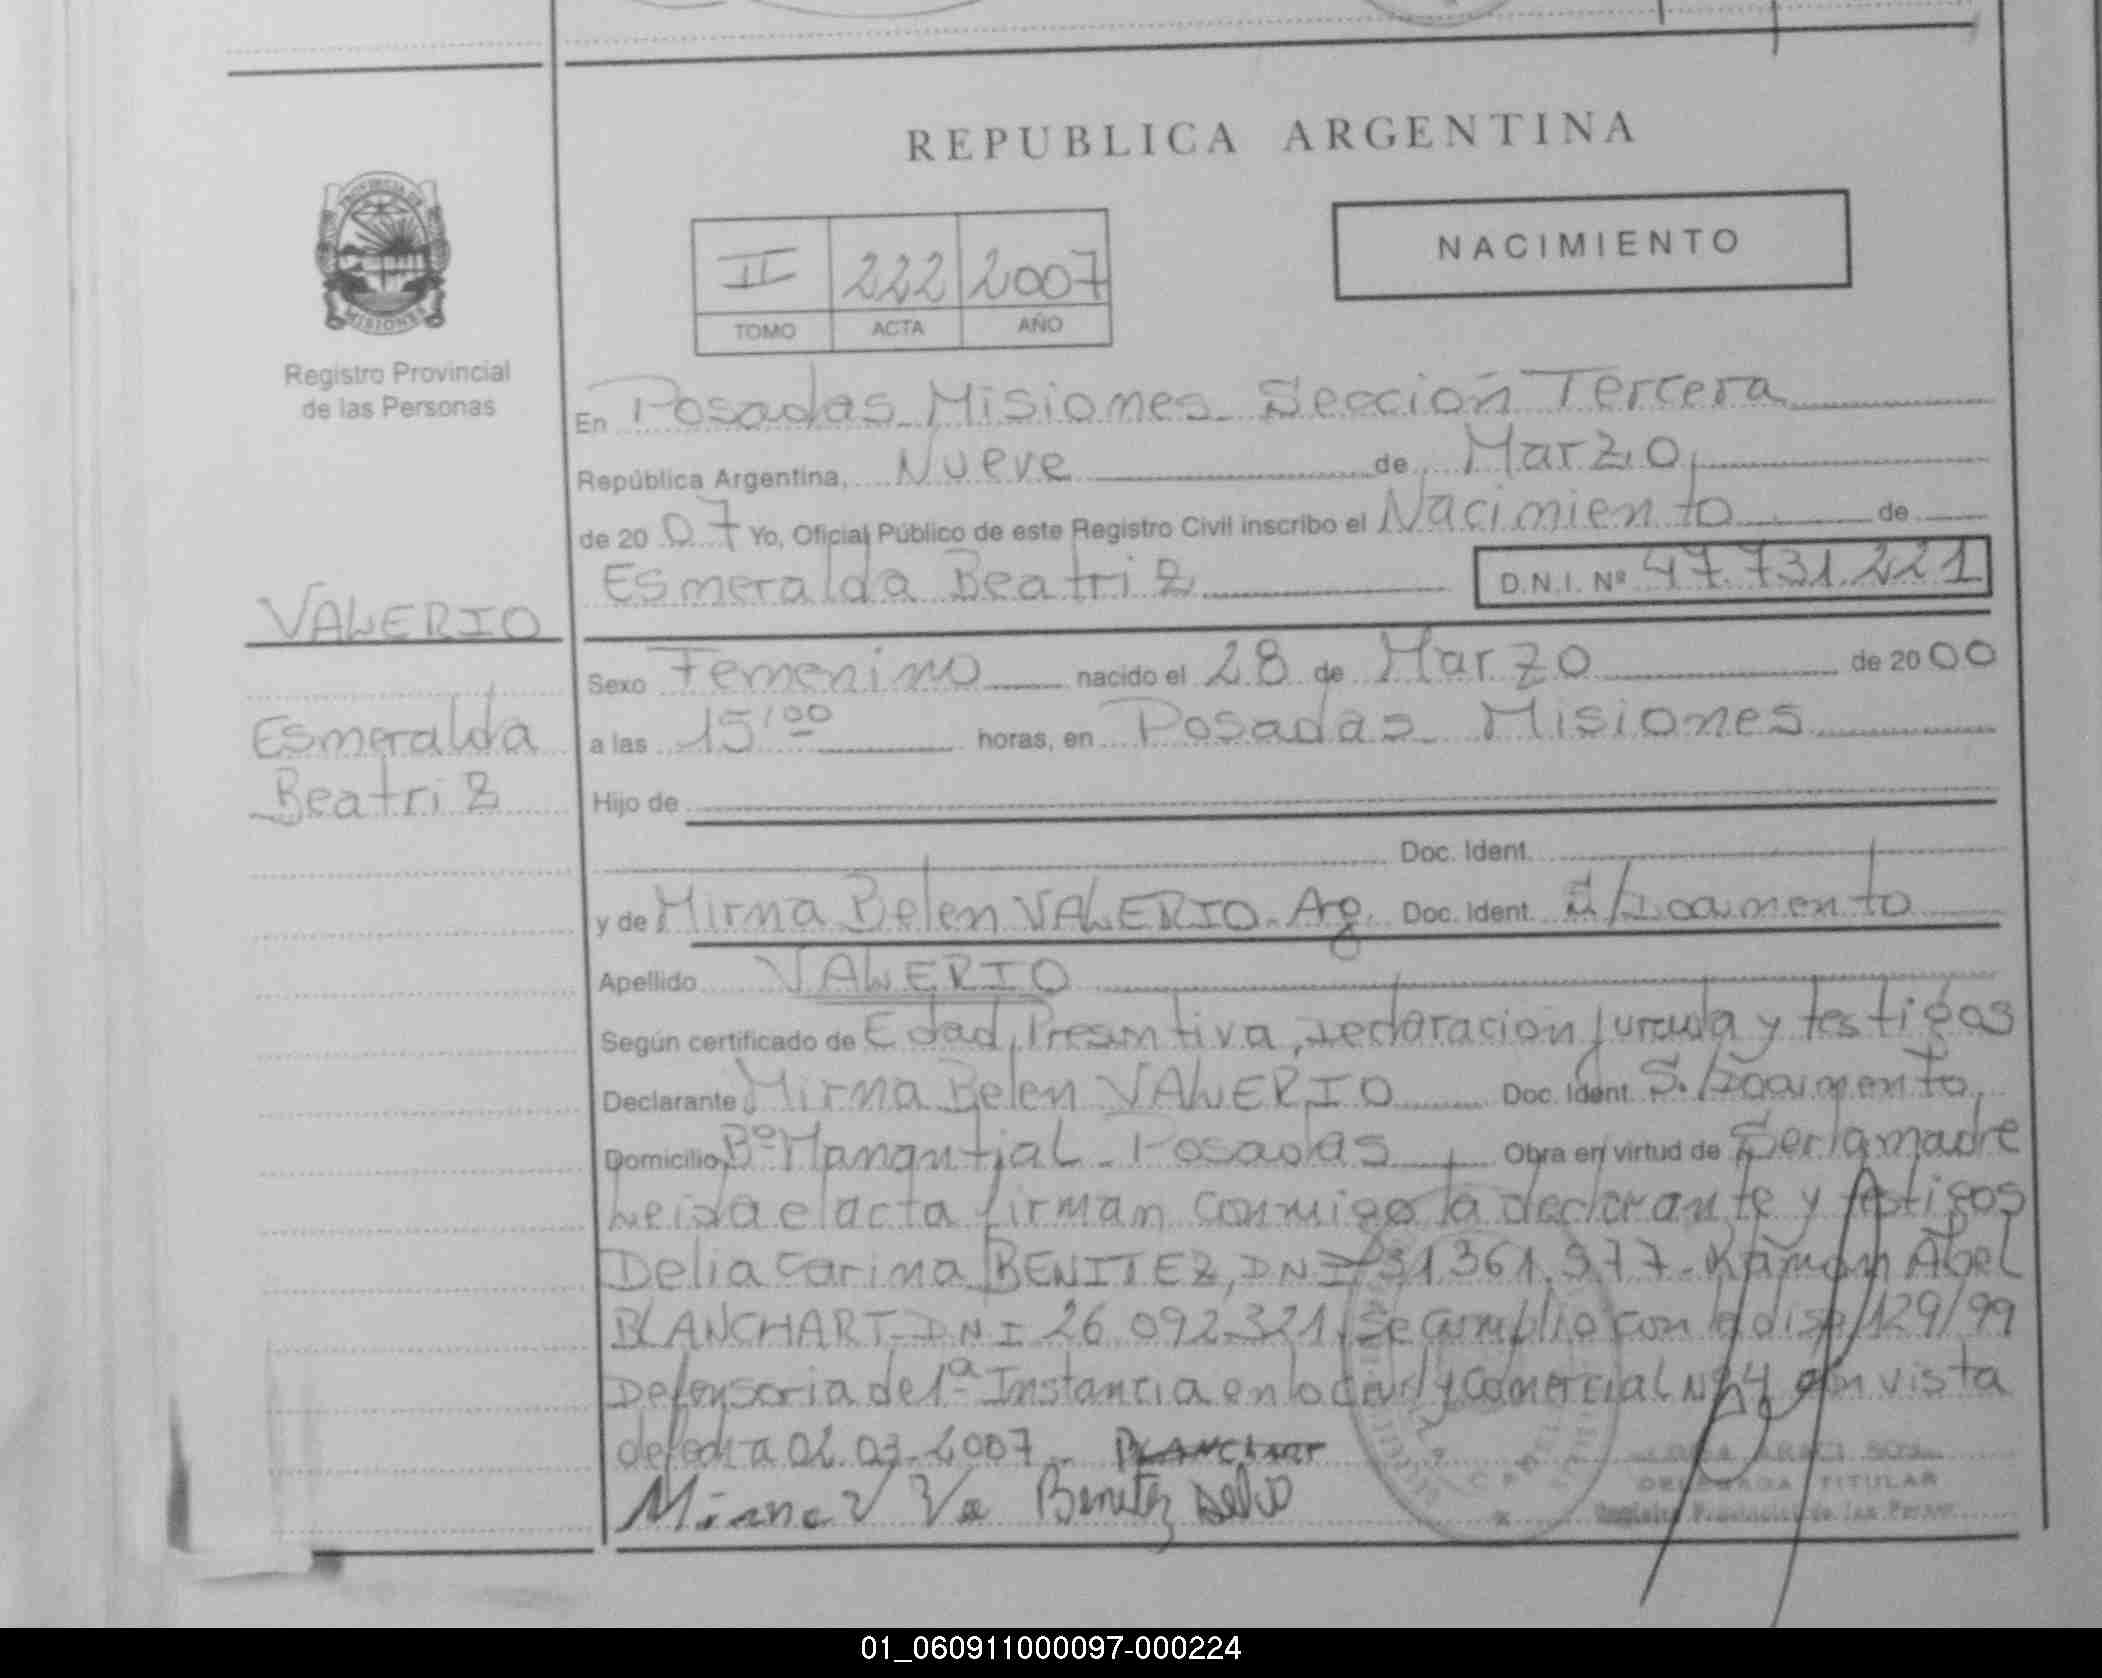 REPUBLICA ARGENTINA
PROVINCIA DE
MISIONES
Registro Provincial
de las Personas
NACIMIENTO
II 222 2007
TOMO ACTA AÑO
En Posadas Misiones Sección Tercera
República Argentina, Nueve de Marzo
de 2007 Yo, Oficial Público de este Registro Civil inscribo el Nacimiento de
Esmeralda Beatriz D.N.I. Nº 47.731.221
VALERIO
Esmeralda
Beatriz
Sexo Femenino nacido el 28 de Marzo de 2000
a las 15:00 horas, en Posadas Misiones
Hijo de
Doc. Ident.
y de Mirna Belen VALERIO. Arg. Doc. Ident. S/Documento
Apellido VALERIO
Según certificado de Edad Presuntiva, declaracion Jurada y testigos
Declarante Mirna Belen VALERIO Doc. Ident. S./Documento
Domicilio Bº Manantial - Posadas Obra en virtud de Ser la madre
Leida el acta firman conmigo la declarante y testigos
Delia Carina BENITEZ, DNI 31.361.977 - Ramon Abel
BLANCHART DNI 26.092.321. Se cumplio con la disp/129/99
Defensoria de 1ª Instancia en lo Civil y Comercial Nº4 con vista
de fecha 02.03.2007 Blanchart
Mirna V Va Benitez Delia
DELEGADA TITULAR
Registro Provincial de las Person
01_060911000097-000224